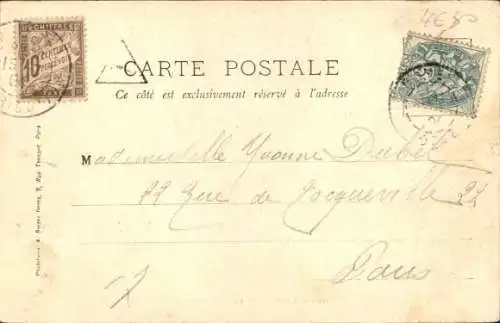 4€50
CHIFFRE
10 CENTIMES
À PERCEVOIR
TAXE
CARTE POSTALE
Ce côté est exclusivement réservé à l'adresse
Mademoiselle Yvonne Dubet
22 Rue de Tocqueville 22
Paris